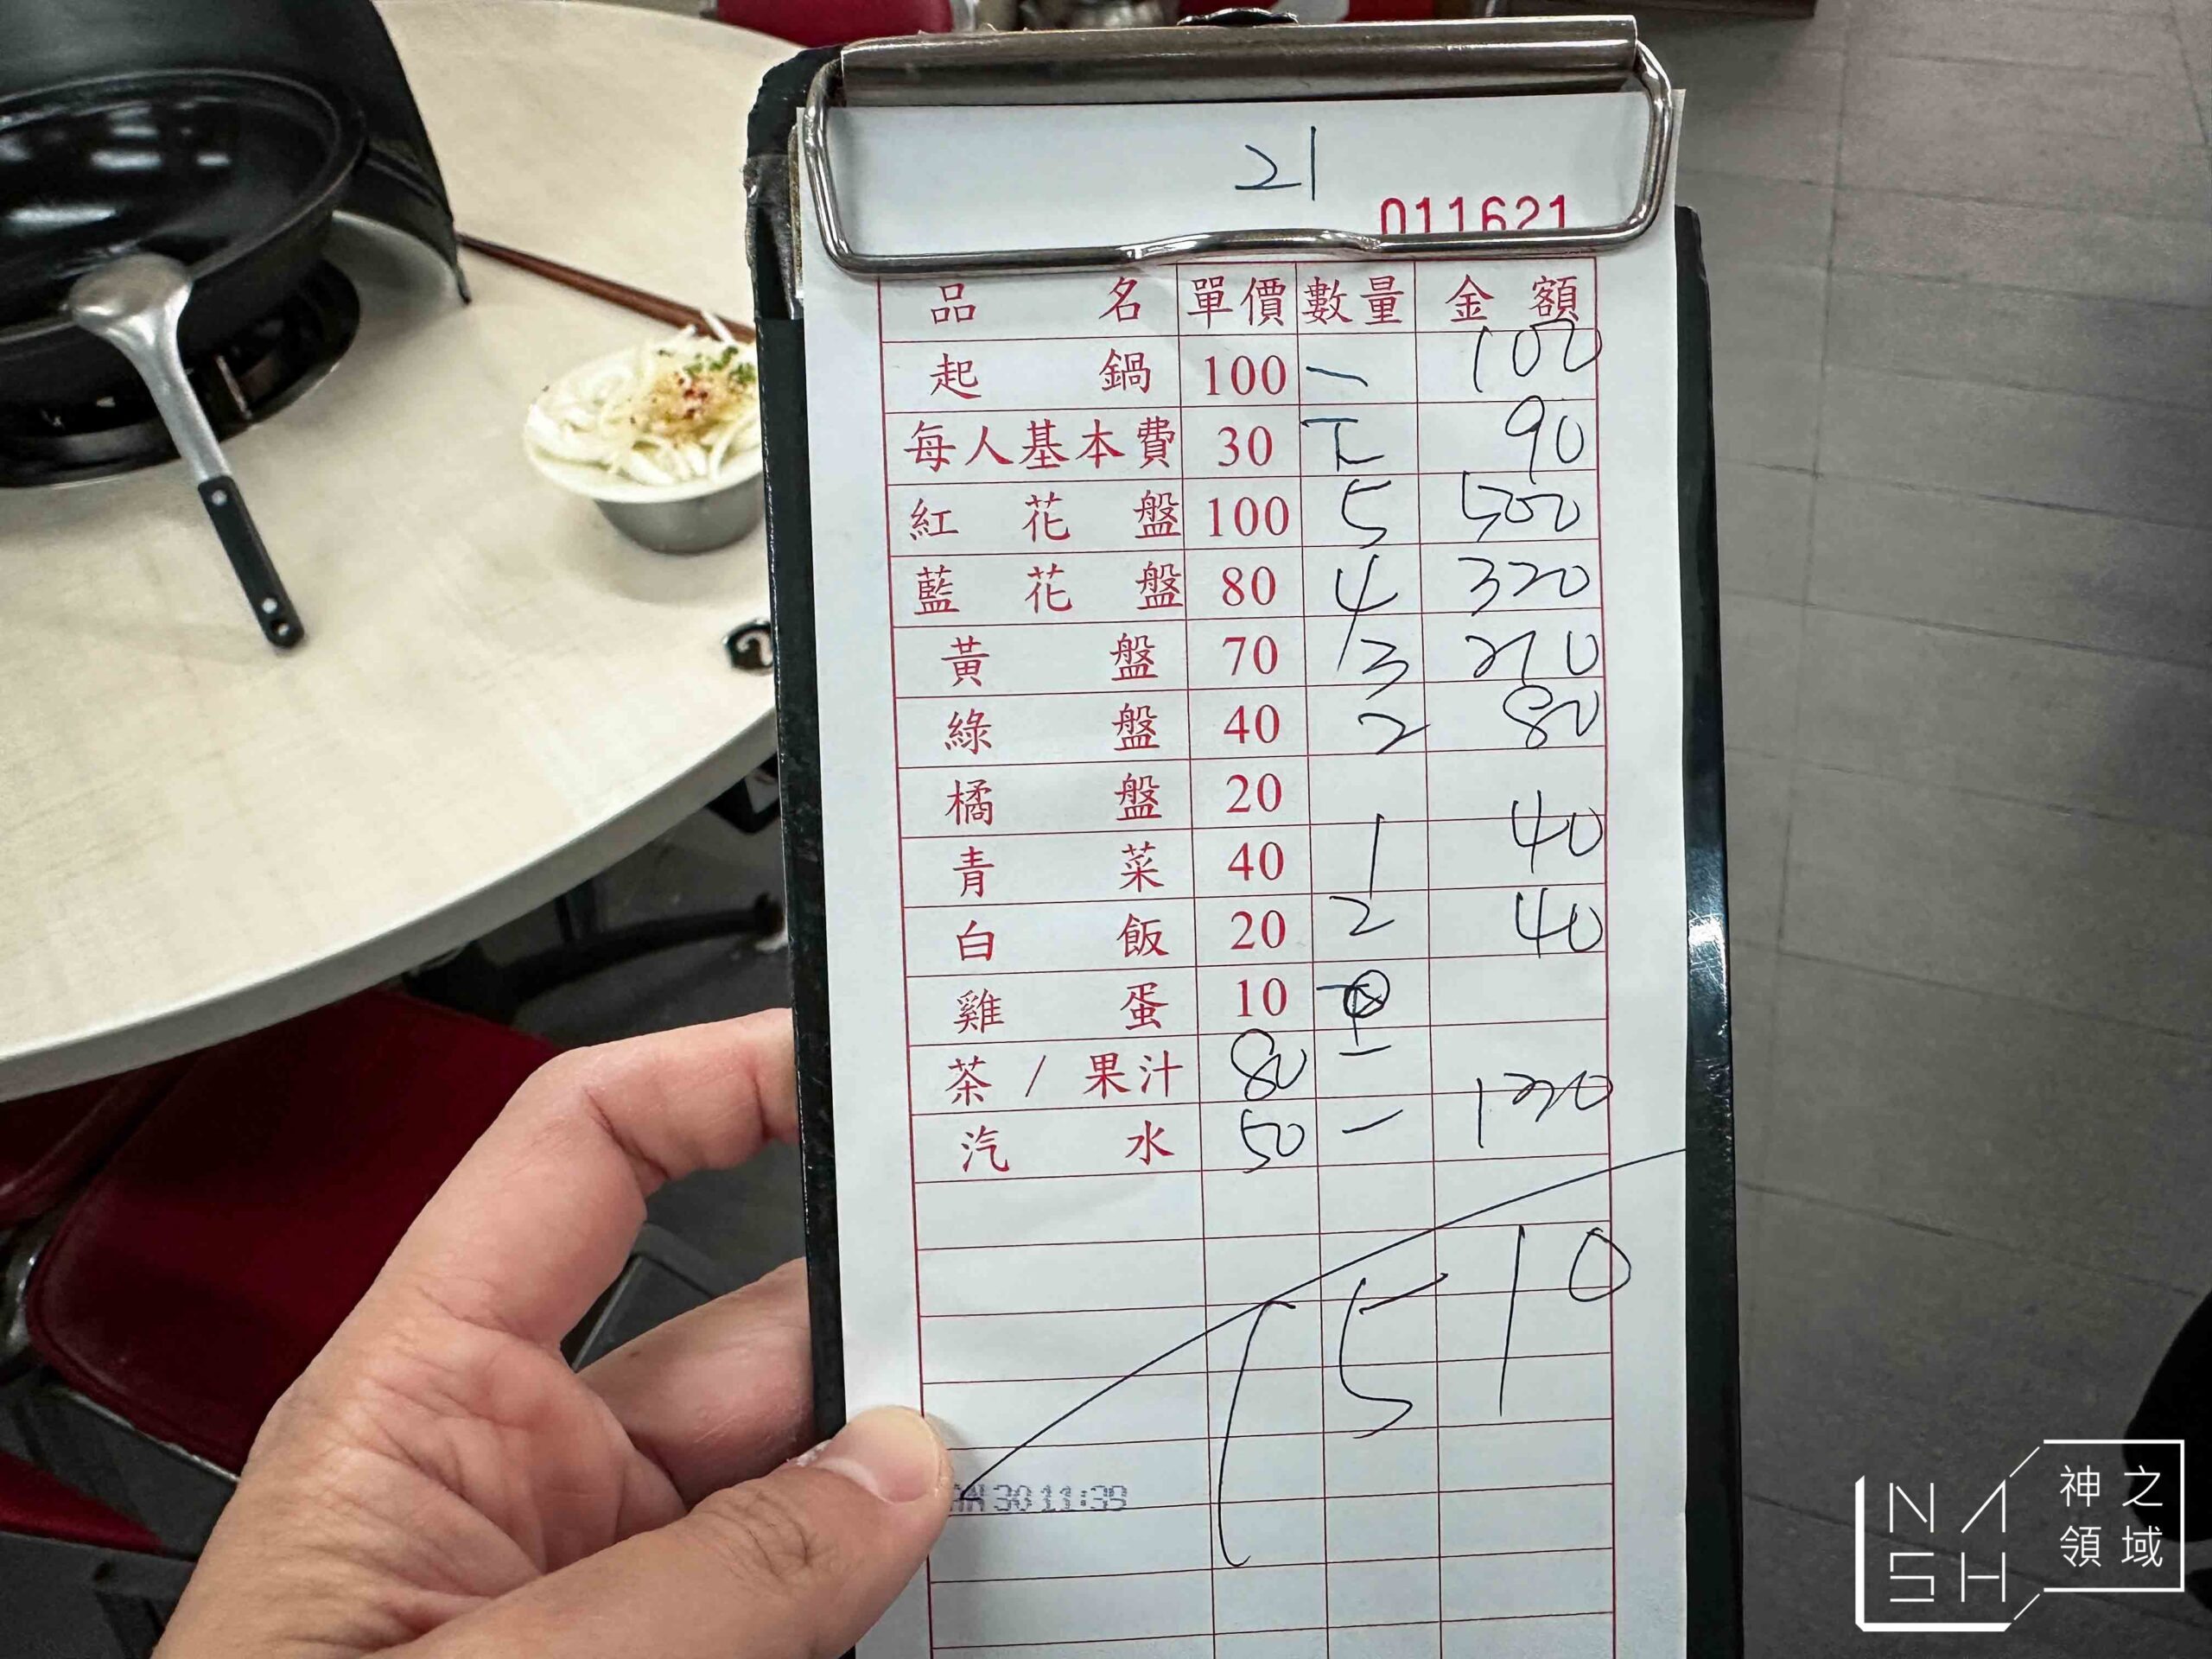 21
011621
品名 單價 數量 金額
起鍋 100 一 100
每人基本費 30 下 90
紅花盤 100 5 500
藍花盤 80 4 320
黃盤 70 3 210
綠盤 40 2 80
橘盤 20
青菜 40 1 40
白飯 20 2 40
雞蛋 10
茶/果汁 80 一
汽水 50 一 130
1510
30 11:39
NASH
神之
領域